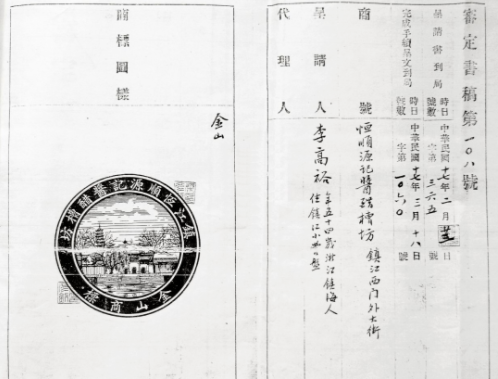 審定書稿第一〇八號
呈請書到局
時日 中華民國十七年二月 日
號數 字第三六五號
完成手續呈文到局
時日 中華民國十七年三月十八日
號數 字第一〇六〇號
商號
恒順源記醬醋糟坊 鎮江西門外大街
呈請人
李高裕 年五十四歲浙江鎮海人
住鎮江小
代理人
商標圖樣
金山
鎮江恆順源記醬醋糟坊
金山商標